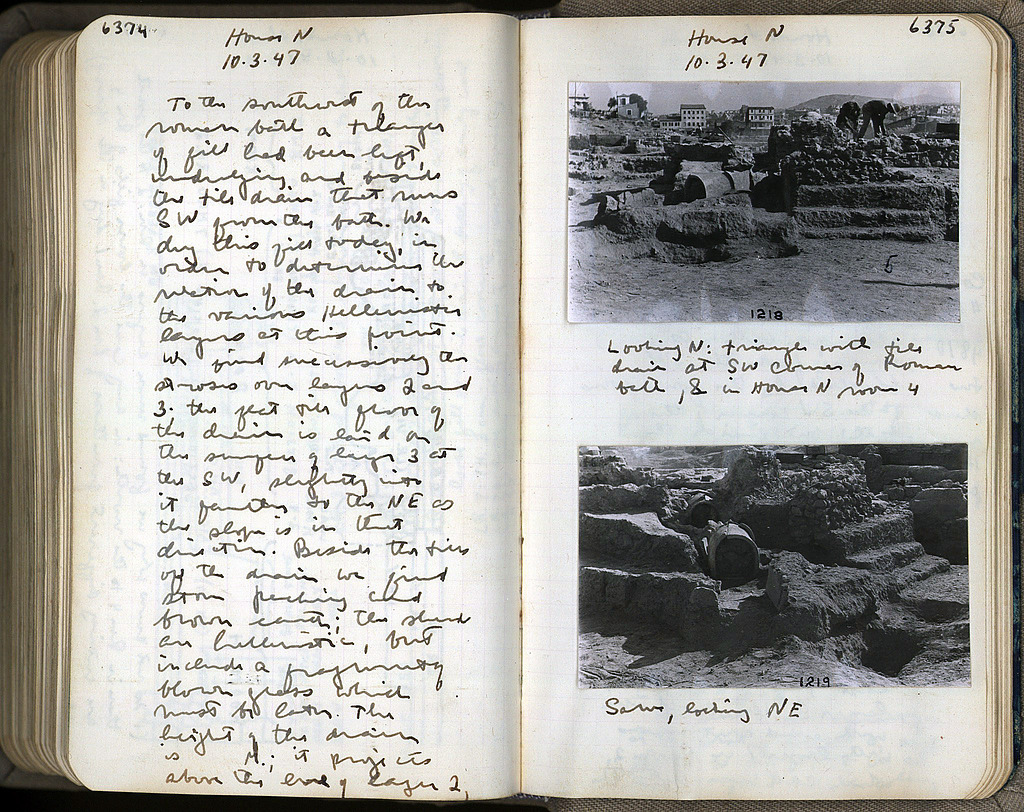 6374
House N
10.3.47
To the southwest of the
roman bath a triangle
of fill had been left,
underlying and beside
the tile drain that runs
SW from the bath. We
dug this fill today, in
order to determine the
relation of the drain to
the various Hellenistic
layers at this point.
We find successively the
stroses over layers 2 and
3. The flat tile floor of
the drain is laid on
the surface of layer 3 at
the SW, slightly into
it farther to the NE as
the slope is in that
direction. Beside the tiles
of the drain we find
stone packing and
brown earth; the sherds
are hellenistic, but
include a fragment of
blown glass which
must be later. The
height of the drain
is M.; it projects
above the level of layer 2,
6375
House N
10.3.47
5
1218
Looking N: triangle with tile
drain at SW corner of Roman
bath, & in House N room 4
1219
Same, looking NE